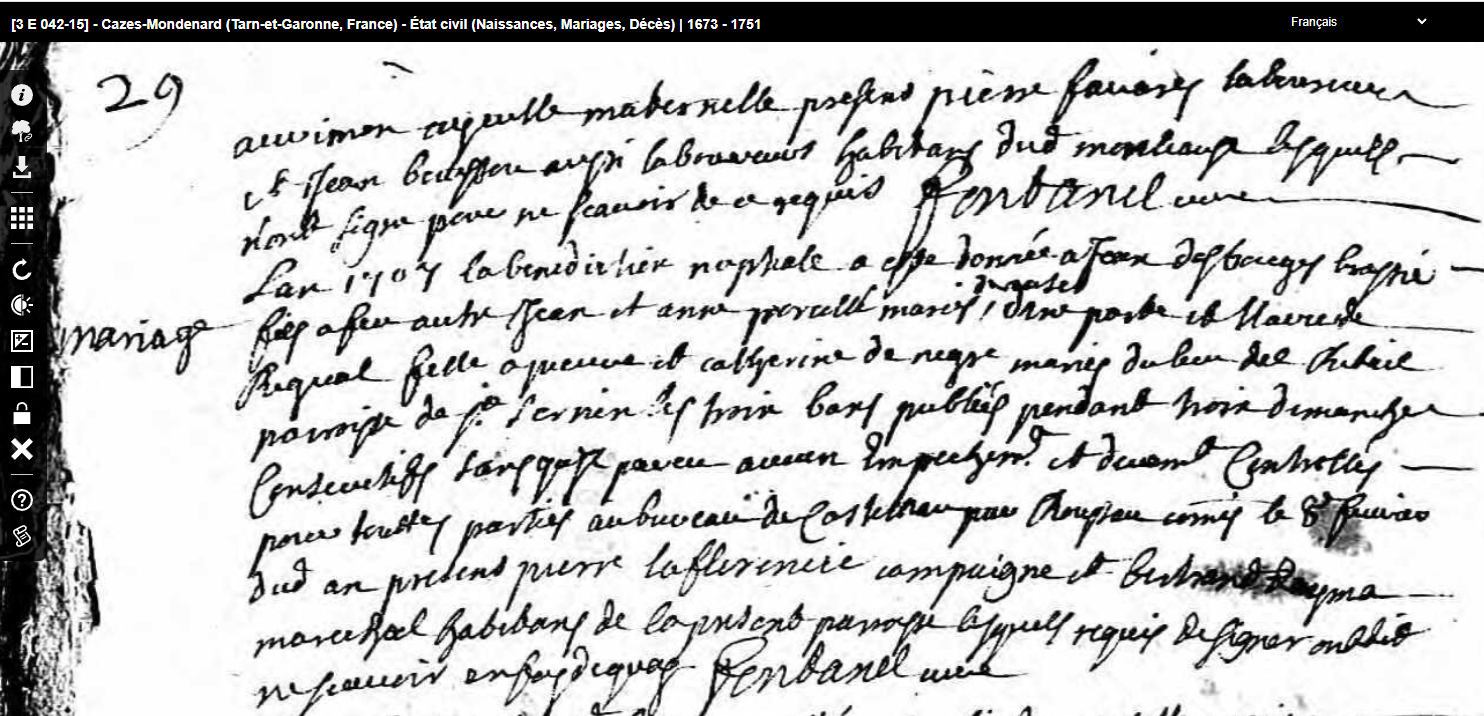 [3 E 042-15] - Cazes-Mondenard (Tarn-et-Garonne, France) - État civil (Naissances, Mariages, Décès) | 1673 - 1751
Français
29
ayeulle maternelle present pierre favares laboureur
et Jean bouissou aussi laboureurs habitans dud lesquels
n'ont signe pour ne scavoir de ce requis Fontanel cure
Lan 1707 la benediction nuptiale a este donnée a Jean brassie
du gasc
mariage
fils a feu autre Jean et anne maries dune part et
Requal fille a pierre et catherine de negre maries du lieu del
paroisse de St Sernin les trois bans publiés pendant trois dimanches
Consecutifs sans quil paru aucun Empechemt. et duemt Controllés
pour touttes parties au bureau de Castelnau par comis le 8e fevrier
dud an present pierre compaigne et bertrand Rayma
marechal habitans de la present paroisse lesquels requis de signer ont dit
ne scavoir en foy de quoy Fontanel cure